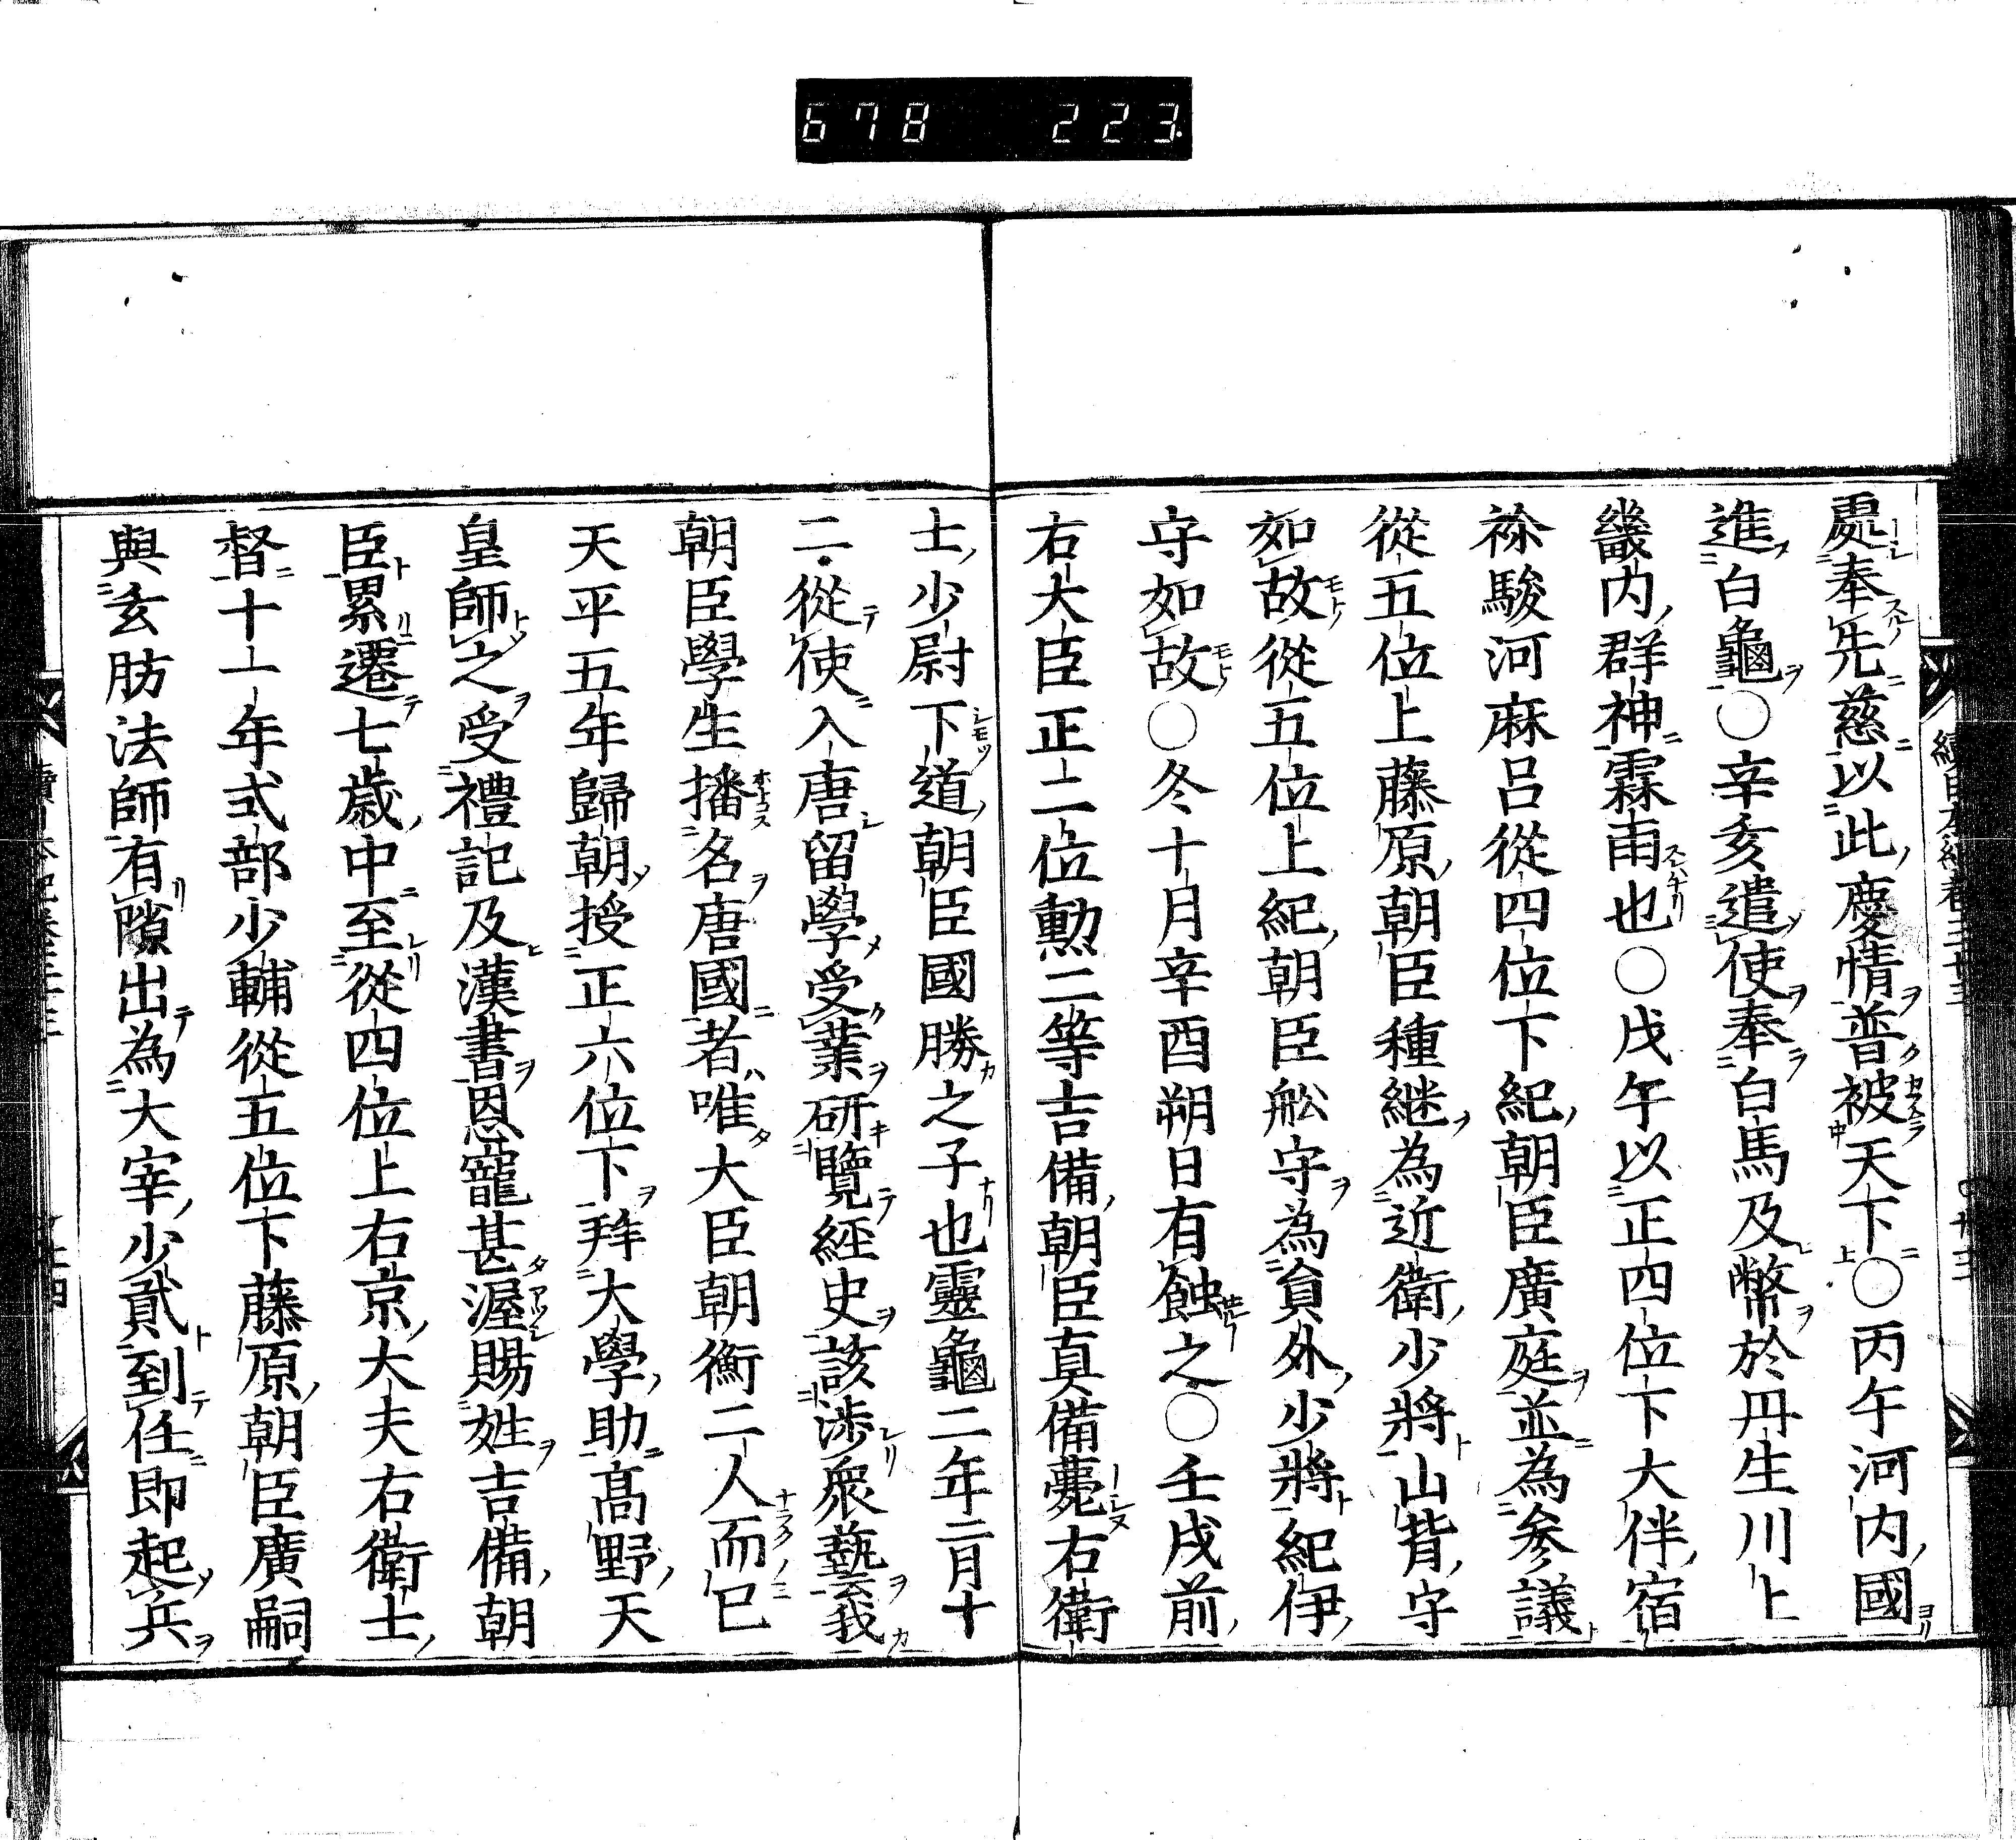 678 223
處奉先慈以此慶情普被天下○丙午河内國
進白龜○辛亥遣使奉白馬及幣於丹生川上
畿内群神霖雨也○戊午以正四位下大伴宿
祢駿河麻呂從四位下紀朝臣廣庭並為参議
從五位上藤原朝臣種継為近衛少將山背守
如故從五位上紀朝臣舩守為負外少將紀伊
守如故○冬十月辛酉朔日有蝕之○壬戌前
右大臣正二位勲二等吉備朝臣真備薨右衛
士少尉下道朝臣國勝之子也靈龜二年二月十
二從使入唐留學受業研覽經史該渉衆藝云我
朝臣學生播名唐國者唯大臣朝衡二人而已
天平五年歸朝授正六位下拜大學助髙野天
皇師之受禮記及漢書恩寵甚渥賜姓吉備朝
臣累遷七歳中至從四位上右京大夫右衛士
督十一年式部少輔從五位下藤原朝臣廣嗣
與玄肪法師有隙出為大宰少貳到任即起兵